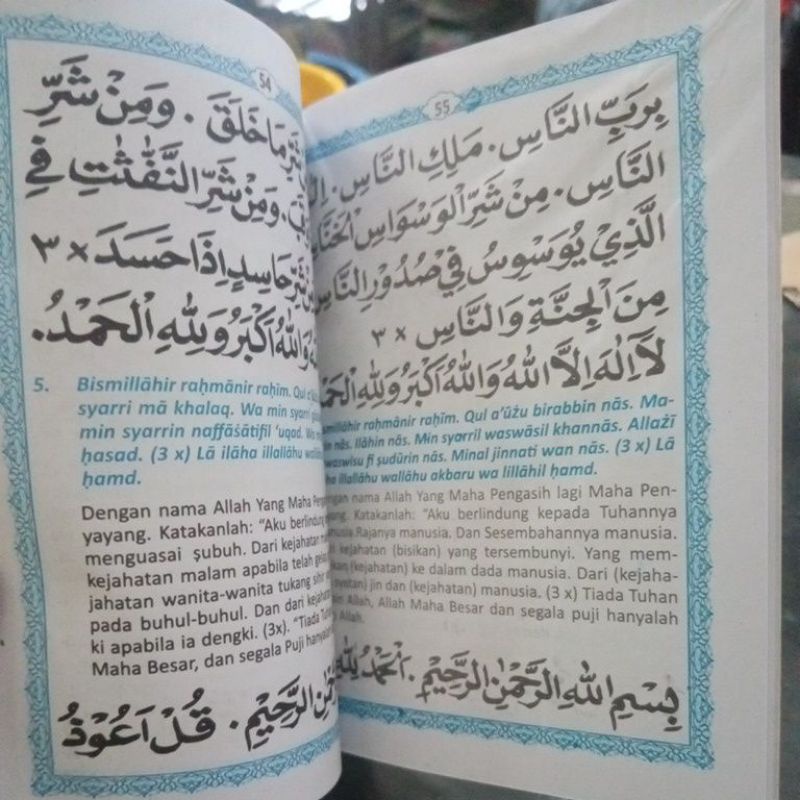 54
شَرِّ مَا خَلَقَ . وَمِنْ شَرِّ
وَمِنْ شَرِّ النَّفّٰثٰتِ فِي
شَرِّ حَاسِدٍ اِذَا حَسَدَ × ٣
وَاللهُ اَكْبَرُ وَلِلّٰهِ الْحَمْدُ.
5. Bismillāhir raḥmānir raḥīm. Qul a‘ūżu
syarri mā khalaq. Wa min syarri
min syarrin naffāṡātifil ‘uqad. Wa
ḥasad. (3 x) Lā ilāha illallāhu
ḥamd.
Dengan nama Allah Yang Maha
yayang. Katakanlah: “Aku berlindung
menguasai ṣubuh. Dari kejahatan
kejahatan malam apabila telah
jahatan wanita-wanita tukang sihir
pada buhul-buhul. Dan dari
ki apabila ia dengki. (3x). “Tiada
Maha Besar, dan segala Puji
الرَّحِيْمِ . قُلْ اَعُوْذُ
55
بِرَبِّ النَّاسِ . مَلِكِ النَّاسِ .
النَّاسِ . مِنْ شَرِّ الْوَسْوَاسِ
الَّذِيْ يُوَسْوِسُ فِيْ صُدُوْرِ النَّاسِ
مِنَ الْجِنَّةِ وَالنَّاسِ × ٣
لَآ اِلٰهَ اِلَّا اللهُ وَاللهُ اَكْبَرُ وَلِلّٰهِ
raḥmānir raḥīm. Qul a‘ūżu birabbin nās. Ma-
nās. Ilāhin nās. Min syarril waswāsil khannās. Allażī
fī ṣudūrin nās. Minal jinnati wan nās. (3 x) Lā
illallāhu wallāhu akbaru wa lillāhil ḥamd.
nama Allah Yang Maha Pengasih lagi Maha Pen-
Katakanlah: “Aku berlindung kepada Tuhannya
Rajanya manusia. Dan Sesembahannya manusia.
kejahatan (bisikan) yang tersembunyi. Yang mem-
(kejahatan) ke dalam dada manusia. Dari (kejaha-
jin dan (kejahatan) manusia. (3 x) Tiada Tuhan
Allah, Allah Maha Besar dan segala puji hanyalah
Allah.
بِسْمِ اللهِ الرَّحْمٰنِ الرَّحِيْمِ .